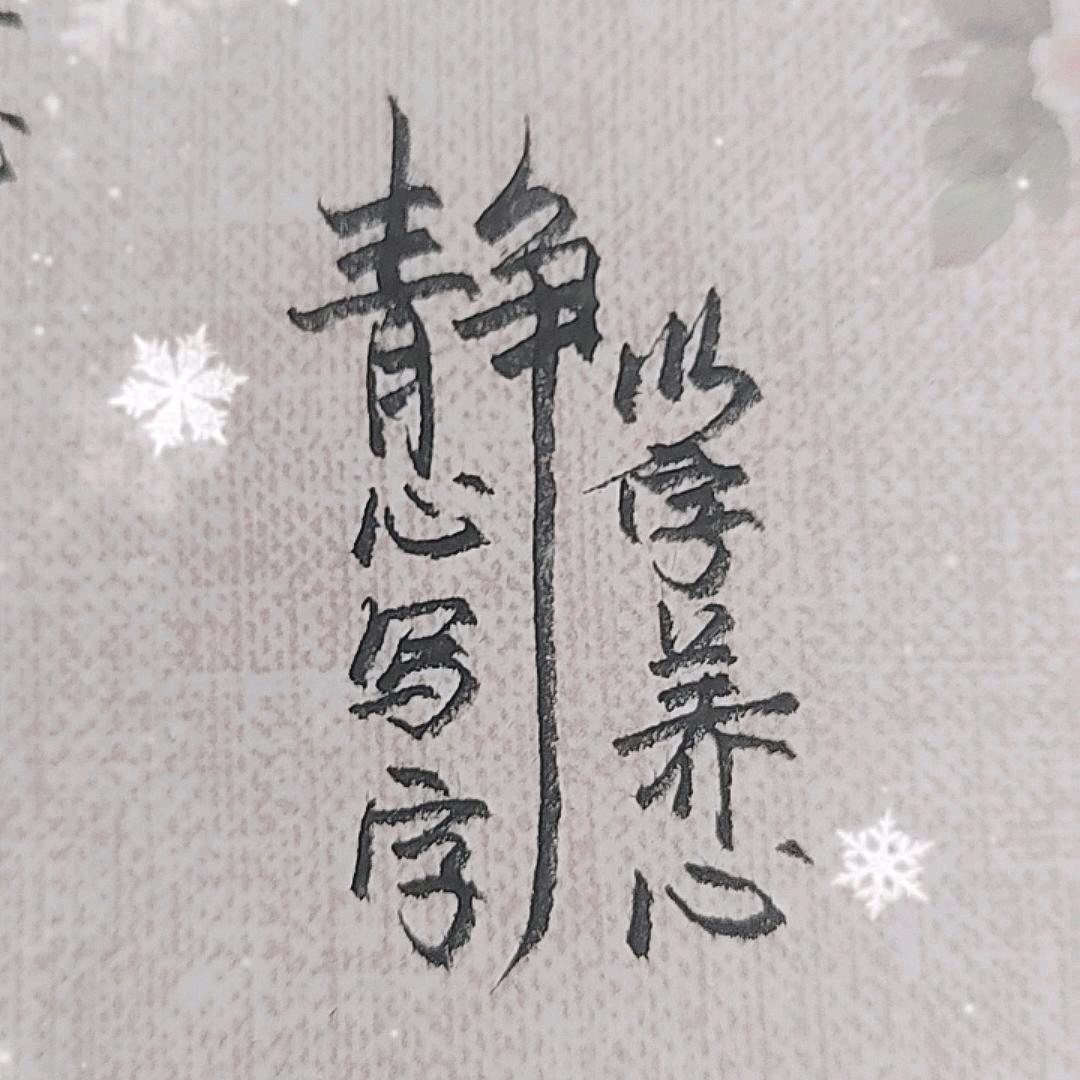 静心写字
以字养心